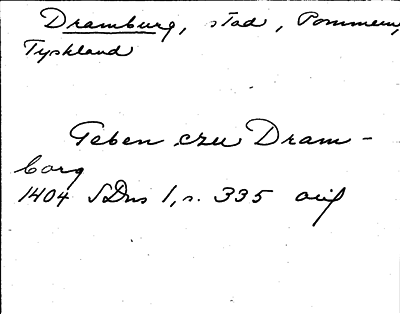 Dramburg, stad, Pommern,
Tyskland
Geben czu Dram-
borg
1404 SDns 1, s. 335 orig